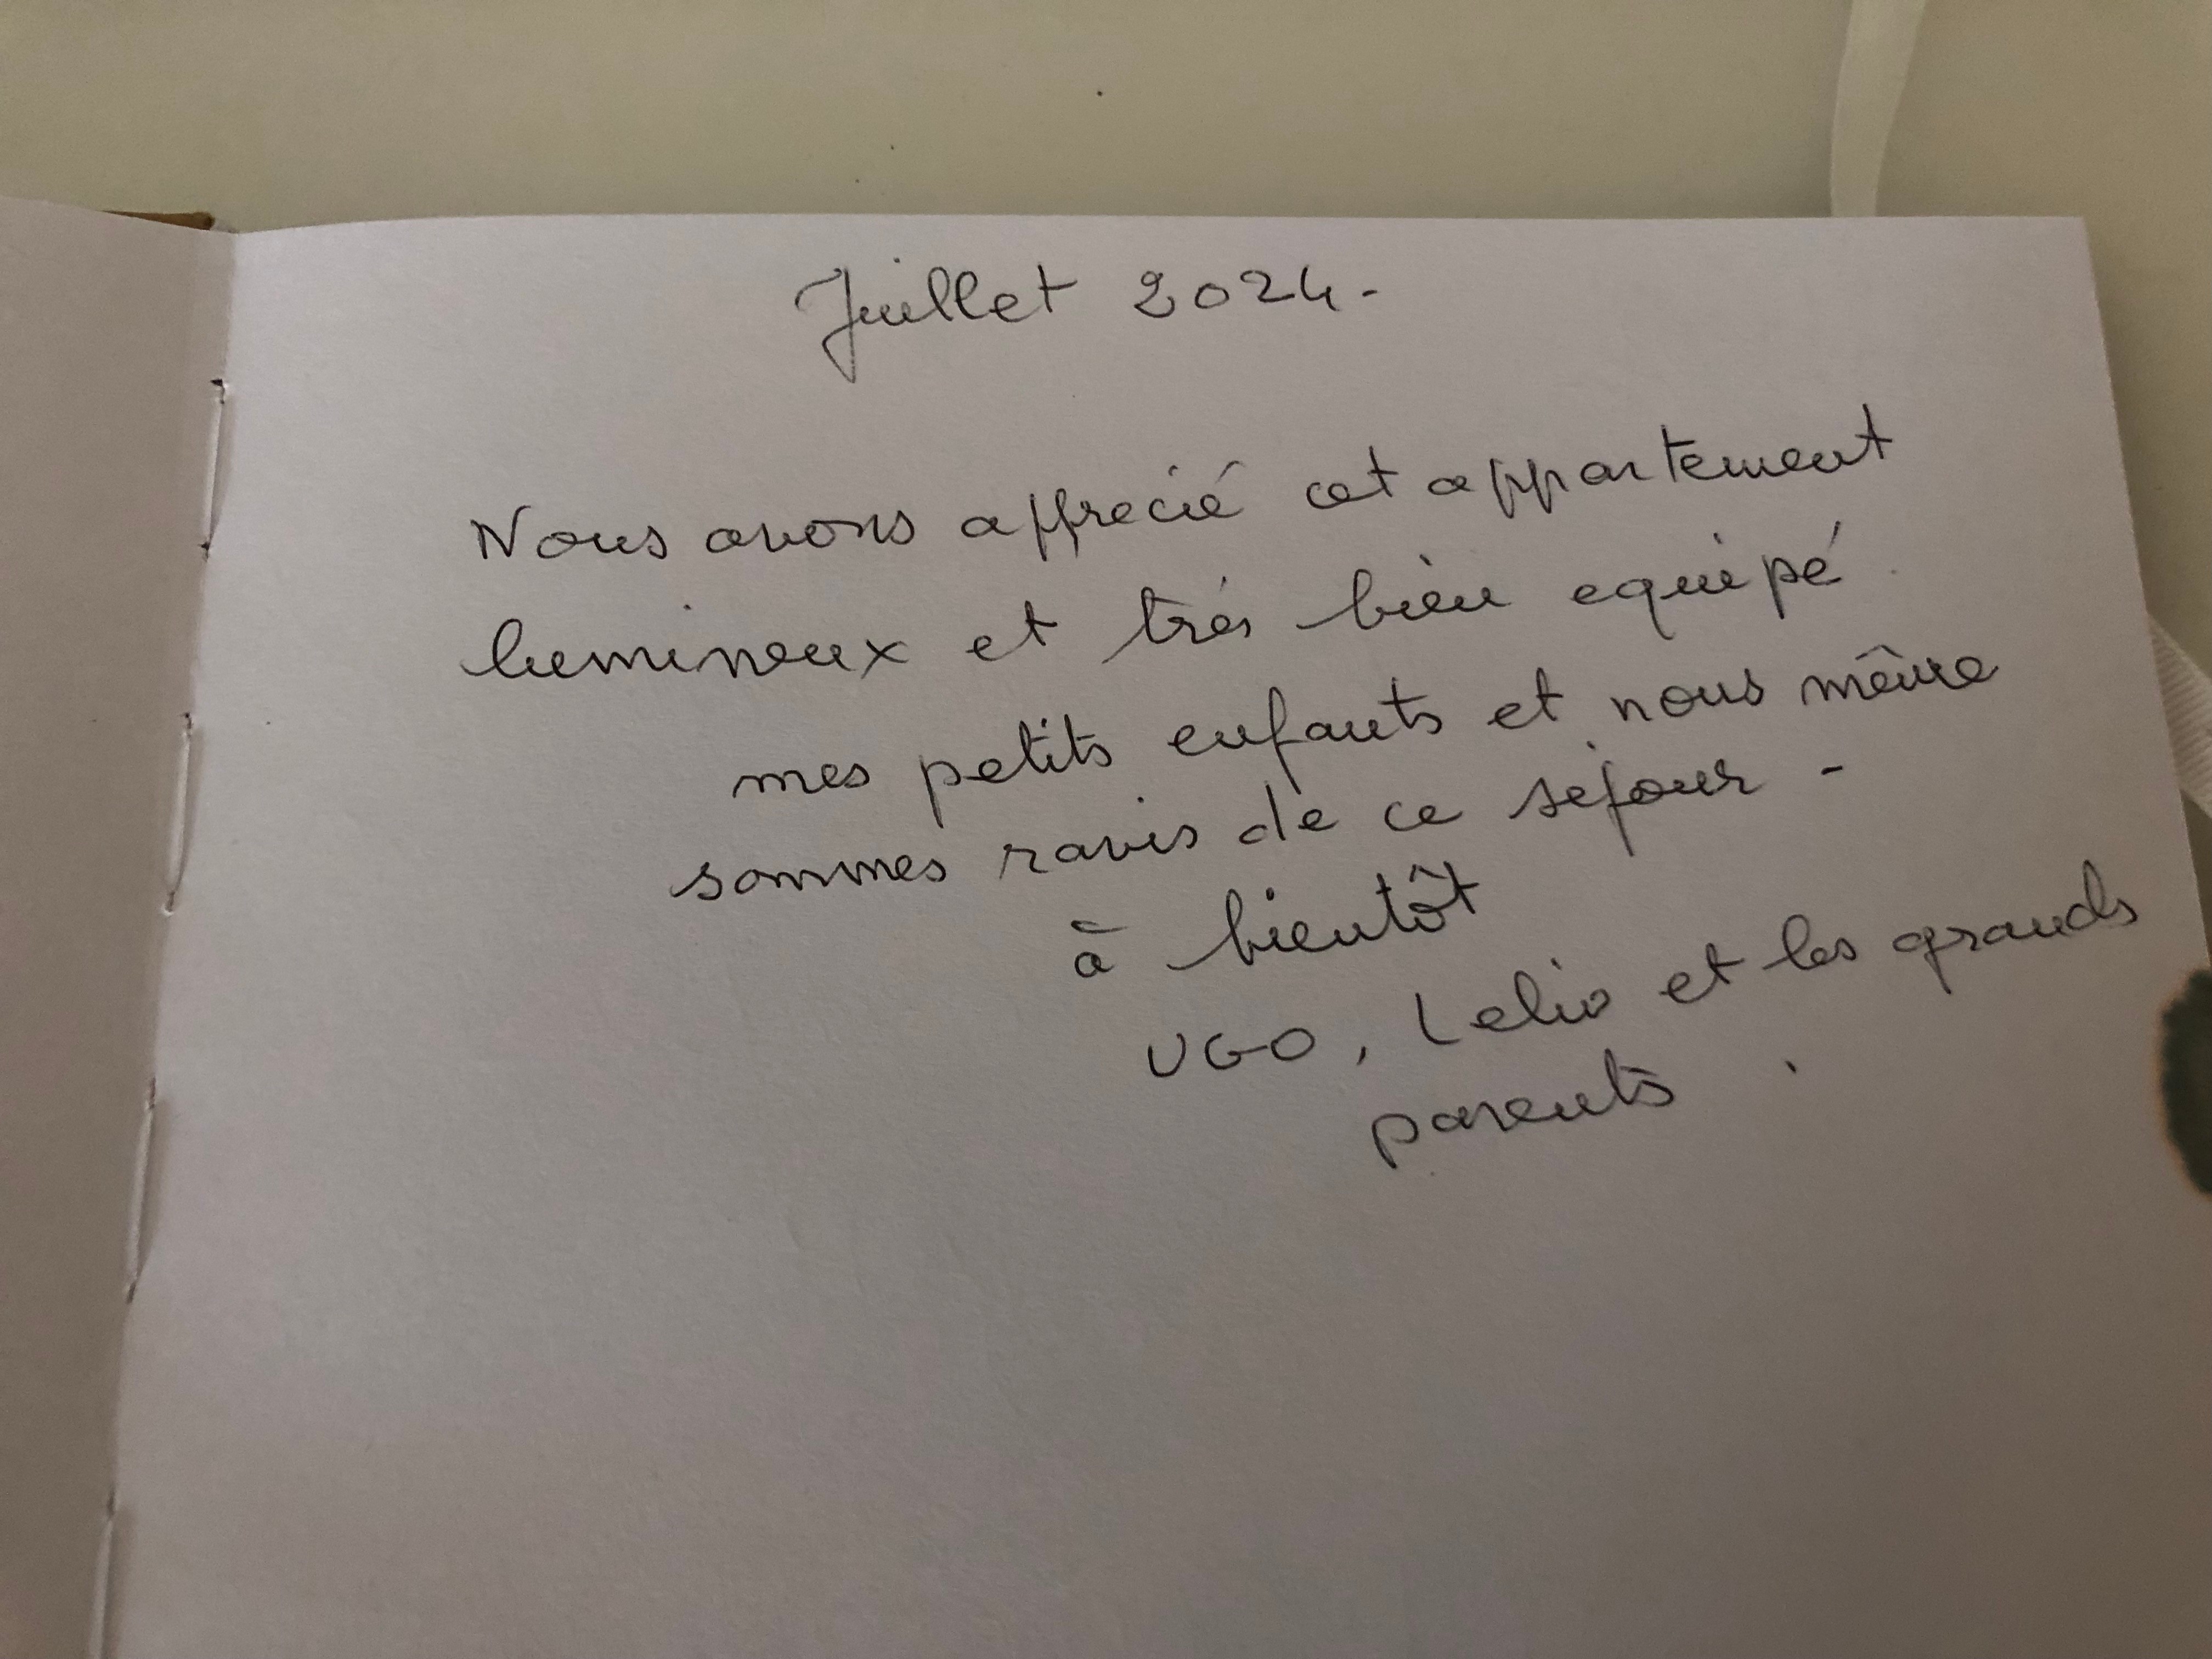 Juillet 2024-
Nous avons apprecié cet appartement
lumineux et très bien equipé
mes petits enfants et nous même
sommes ravis de ce sejour -
à bientôt
UGO, Lelio et les grands
parents.